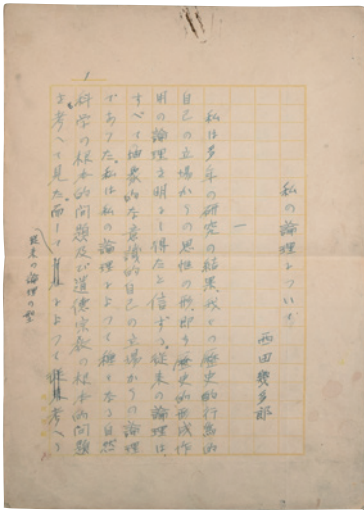 私の論理について
西田幾多郎
一
私は多年の研究の結果、我々の歴史的行為的
自己の立場からの思惟の形、即ち歴史的形成作
用の論理を明にし得たと信ずる。従来の論理は、
すべて抽象的な意識的自己の立場からの論理
であつた。私は私の論理によつて種々なる自然
科学の根本的問題及び道徳宗教の根本的問題
を考へて見た。而して
によつて 考へ
従来の論理の型
1